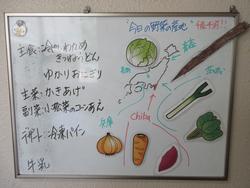 "今日の野菜の産地"
主食：冷やしわかめ
きつねうどん
ゆかりおにぎり
主菜：かきあげ
副菜：小松菜のコーンあん
デザート：冷凍パイン
牛乳
青森
茨城
Chiba
兵庫